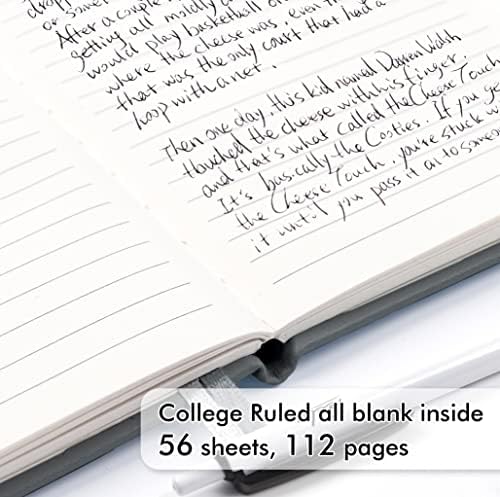 After a couple
getting all mildly
would play basketball or
where the cheese was, even
that was the only court that had a
hoop with a net.
Then one day, this kid named Darren Walsh
touched the cheese with his finger,
and that's what called the Cheese Touch
It's basically the Cooties. If you ge
the Cheese Touch, you're stuck w
it until you pass it on to some
College Ruled all blank inside
56 sheets, 112 pages